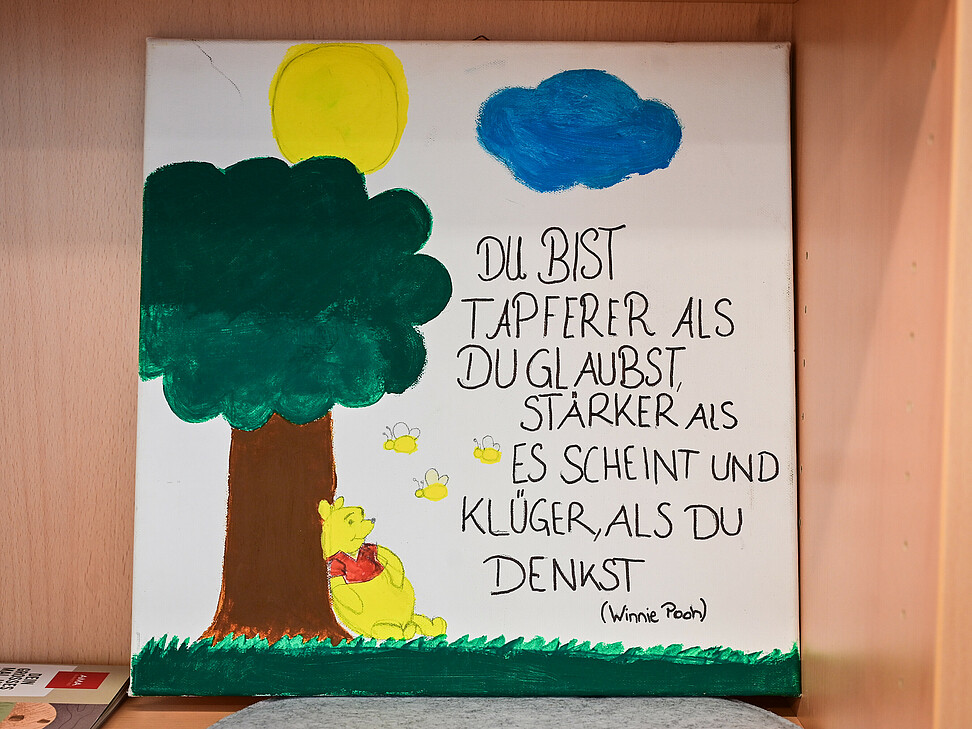 DU BIST
TAPFERER ALS
DU GLAUBST,
STÄRKER ALS
ES SCHEINT UND
KLÜGER, ALS DU
DENKST
(Winnie Pooh)
DEIN
GROSSES
AMA